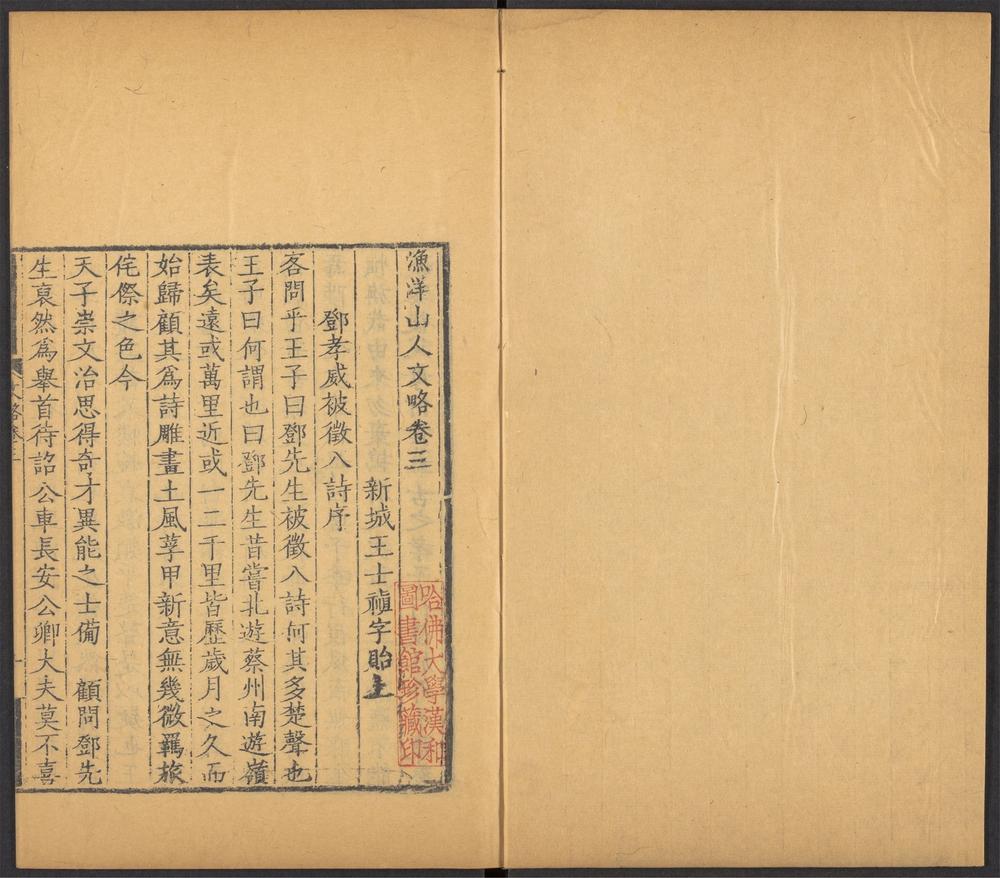 漁洋山人文略卷三
新城王士禛字貽上
鄧孝威被徵入詩序
客問乎王子曰鄧先生被徵入詩何其多楚聲也
王子曰何謂也曰鄧先生昔嘗北遊蔡州南遊嶺
表矣遠或萬里近或一二千里皆歷歲月之久而
始歸顧其爲詩雕畫土風莩甲新意無幾微羈旅
侘傺之色今
天子崇文治思得奇才異能之士備 顧問鄧先
生裒然爲舉首待詔公車長安公卿大夫莫不喜
文略卷三
一
哈佛大學漢和
圖書館珍藏印